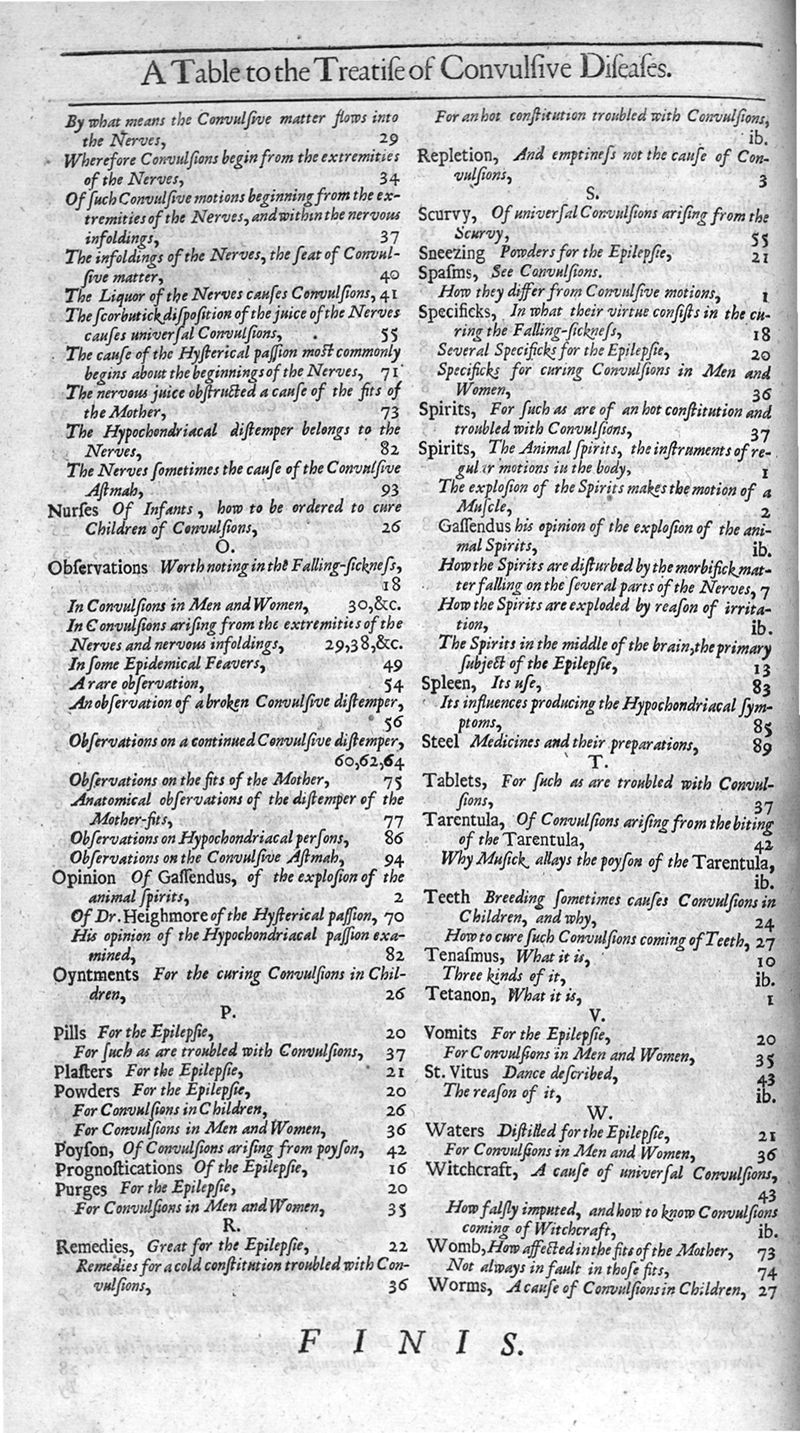 A Table to the Treatiſe of Convulſive Diſeaſes.
By what means the Convulſive matter flows into
the Nerves, 29
Wherefore Convulſions begin from the extremities
of the Nerves, 34
Of ſuch Convulſive motions beginning from the ex-
tremities of the Nerves, and within the nervous
infoldings, 37
The infoldings of the Nerves, the ſeat of Convul-
ſive matter, 40
The Liquor of the Nerves cauſes Convulſions, 41
The ſcorbutick diſpoſition of the juice of the Nerves
cauſes univerſal Convulſions, 55
The cauſe of the Hyſterical paſſion moſt commonly
begins about the beginnings of the Nerves, 71
The nervous juice obſtructed a cauſe of the fits of
the Mother, 73
The Hypochondriacal diſtemper belongs to the
Nerves, 82
The Nerves ſometimes the cauſe of the Convulſive
Aſtmah, 93
Nurſes Of Infants, how to be ordered to cure
Children of Convulſions, 26
O.
Obſervations Worth noting in the Falling-ſickneſs,
18
In Convulſions in Men and Women, 30,&c.
In Convulſions ariſing from the extremities of the
Nerves and nervous infoldings, 29,38,&c.
In ſome Epidemical Feavers, 49
A rare obſervation, 54
An obſervation of a broken Convulſive diſtemper,
56
Obſervations on a continued Convulſive diſtemper,
60,62,64
Obſervations on the fits of the Mother, 75
Anatomical obſervations of the diſtemper of the
Mother-fits, 77
Obſervations on Hypochondriacal perſons, 86
Obſervations on the Convulſive Aſtmah, 94
Opinion Of Gaſſendus, of the exploſion of the
animal ſpirits, 2
Of Dr. Heighmore of the Hyſterical paſſion, 70
His opinion of the Hypochondriacal paſſion exa-
mined, 82
Oyntments For the curing Convulſions in Chil-
dren, 26
P.
Pills For the Epilepſie, 20
For ſuch as are troubled with Convulſions, 37
Plaſters For the Epilepſie, 21
Powders For the Epilepſie, 20
For Convulſions in Children, 26
For Convulſions in Men and Women, 36
Poyſon, Of Convulſions ariſing from poyſon, 42
Prognoſtications Of the Epilepſie, 16
Purges For the Epilepſie, 20
For Convulſions in Men and Women, 35
R.
Remedies, Great for the Epilepſie, 22
Remedies for a cold conſtitution troubled with Con-
vulſions, 36
For an hot conſtitution troubled with Convulſions,
ib.
Repletion, And emptineſs not the cauſe of Con-
vulſions, 3
S.
Scurvy, Of univerſal Convulſions ariſing from the
Scurvy, 55
Sneezing Powders for the Epilepſie, 21
Spaſms, See Convulſions.
How they differ from Convulſive motions, 1
Specificks, In what their virtue conſiſts in the cu-
ring the Falling-ſickneſs, 18
Several Specificks for the Epilepſie, 20
Specificks for curing Convulſions in Men and
Women, 36
Spirits, For ſuch as are of an hot conſtitution and
troubled with Convulſions, 37
Spirits, The Animal ſpirits, the inſtruments of re-
gular motions iu the body, 1
The exploſion of the Spirits makes the motion of a
Muſcle, 2
Gaſſendus his opinion of the exploſion of the ani-
mal Spirits, ib.
How the Spirits are diſturbed by the morbifick mat-
ter falling on the ſeveral parts of the Nerves, 7
How the Spirits are exploded by reaſon of irrita-
tion, ib.
The Spirits in the middle of the brain, the primary
ſubject of the Epilepſie, 13
Spleen, Its uſe, 83
Its influences producing the Hypochondriacal ſym-
ptoms, 85
Steel Medicines and their preparations, 89
T.
Tablets, For ſuch as are troubled with Convul-
ſions, 37
Tarentula, Of Convulſions ariſing from the biting
of the Tarentula, 42
Why Muſick allays the poyſon of the Tarentula,
ib.
Teeth Breeding ſometimes cauſes Convulſions in
Children, and why, 24
How to cure ſuch Convulſions coming of Teeth, 27
Tenaſmus, What it is, 10
Three kinds of it, ib.
Tetanon, What it is, 1
V.
Vomits For the Epilepſie, 20
For Convulſions in Men and Women, 35
St. Vitus Dance deſcribed, 43
The reaſon of it, ib.
W.
Waters Diſtilled for the Epilepſie, 21
For Convulſions in Men and Women, 36
Witchcraft, A cauſe of univerſal Convulſions,
43
How falſly imputed, and how to know Convulſions
coming of Witchcraft, ib.
Womb, How affected in the fits of the Mother, 73
Not always in fault in thoſe fits, 74
Worms, A cauſe of Convulſions in Children, 27
FINIS.